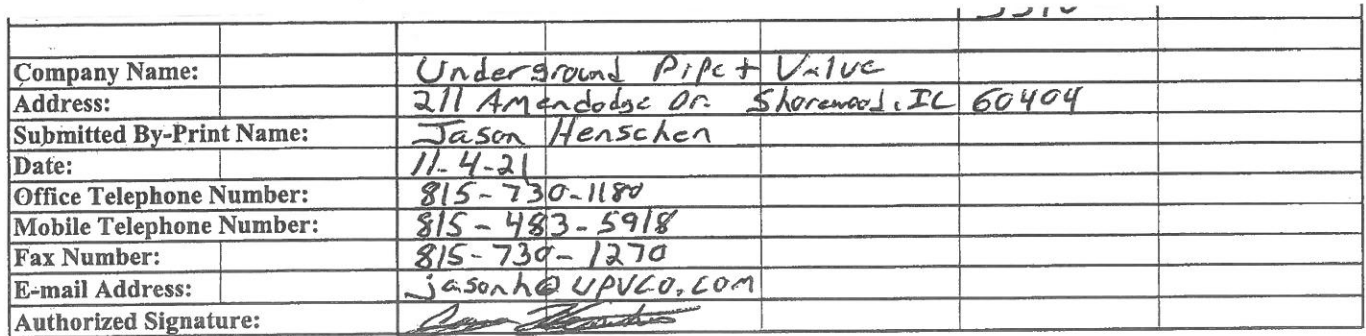 Company Name: Underground Pipe + Valve
Address: 211 Amendodge Dr. Shorewood, IL 60404
Submitted By-Print Name: Jason Henschen
Date: 11-4-21
Office Telephone Number: 815-730-1180
Mobile Telephone Number: 815-483-5918
Fax Number: 815-730-1270
E-mail Address: jasonh@UPVCO.COM
Authorized Signature: